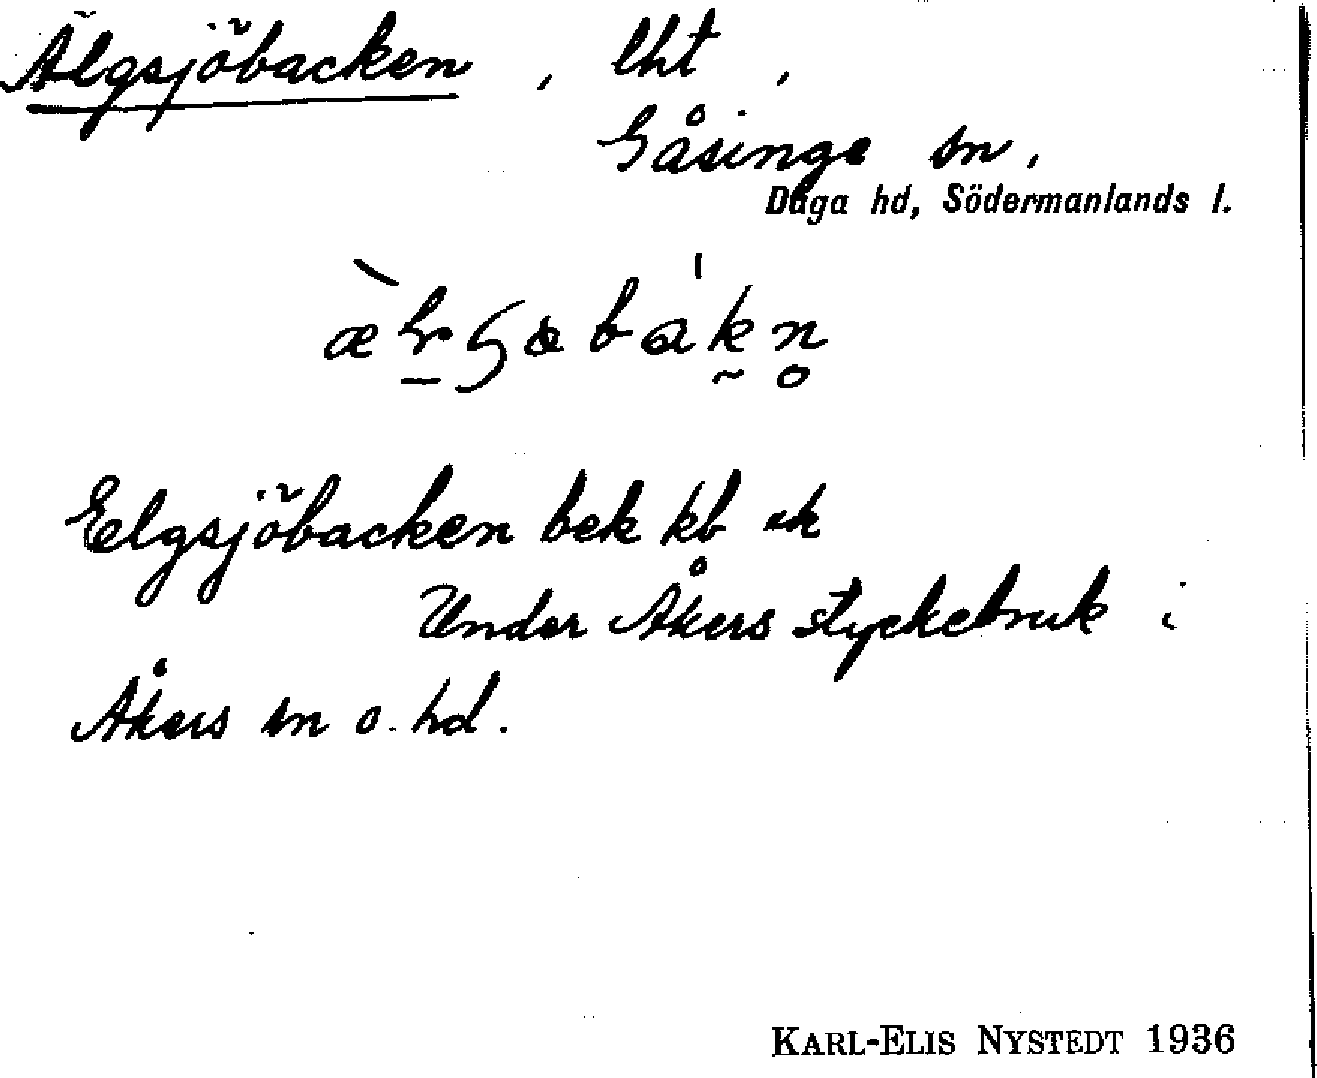 Älgsjöbacken, lht,
Gåsinge sn.
Daga hd, Södermanlands l.
Elgsjöbacken bek kb ek
Under Åkers styckebruk i
Åkers sn o. hd.
KARL-ELIS NYSTEDT 1936